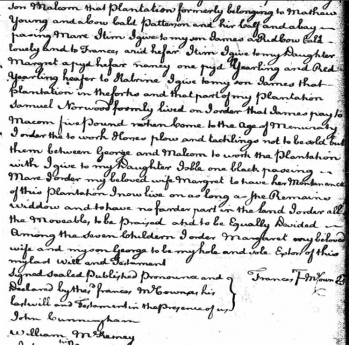 Son Malcom that Plantation formerly belonging to Mathew
Young and a bow bald Patterson and his half and a bay
paring Mare Itim I give to my son James a Red bow Cald
lovely and to Frances and hefar Itim I give to my Daughter
Margret a pyd hefar nancy one pyd Yearling and Red
Yearling heafer to Katrine I give to my son James that
Plantation in the forks and that part of my Plantation
Samuel Norwood formly lived on I order that James pay to
Macom five Pound when come to the age of
I order the to work Horses plow and tacklings not to be sold but
them between George and Malcom to work the Plantation
with I give to my Daughter Isbla one black paceing
Mare I order my beloved wife Margret to have her Mentanence
of this Plantation I now live on as long as she Remains
Widdow and to have no farder part in the land I order all
the Moveable to be Praised and to be Equally Divided
Among the Seven Children I order Margaret my beloved
wife and my son George to be my hole and sole Extors of this
my last Will and Testament
Signed Sealed Published Pronounce and
Declared by the sd Frances McCown as his
last will and Testament in the Presence of us
Frances McCown
John Cunningham
William McKemey